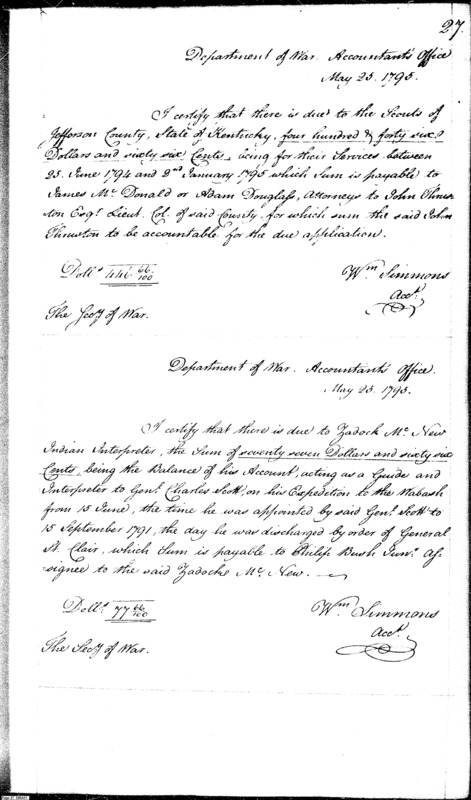 27.
Department of War. Accountant's Office
May 25. 1795.
I certify that there is due to the Scouts of
Jefferson County, State of Kentucky, four hundred & forty six
Dollars and sixty six Cents, being for their Services between
25. June 1794 and 2nd January 1795 which Sum is payable to
James Mc Donald or Adam Douglass, Attorneys to John Thrus-
ton Esqr. Lieut. Col. of said County. for which sum the said John
Thruston to be accountable for the due application.
Dolls. 446 66/100
Wm. Simmons
Acct.
The Secy of War.
Department of War. Accountants Office.
May 25. 1795.
I certify that there is due to Zadock Mc. New
Indian Interpreter, the Sum of seventy seven Dollars and sixty six
Cents, being the Balance of his Account, acting as a Guide and
Interpreter to Genl. Charles Scott, on his Expedetion to the Wabash
from 15 June, the time he was appointed by said Genl. Scott to
15 September 1791, the day he was discharged by order of General
St. Clair, which Sum is payable to Philip Bush Junr. As-
signee to the said Zadock Mc. New.
Dolls. 77 66/100
Wm. Simmons
Acct.
The Secy of War.